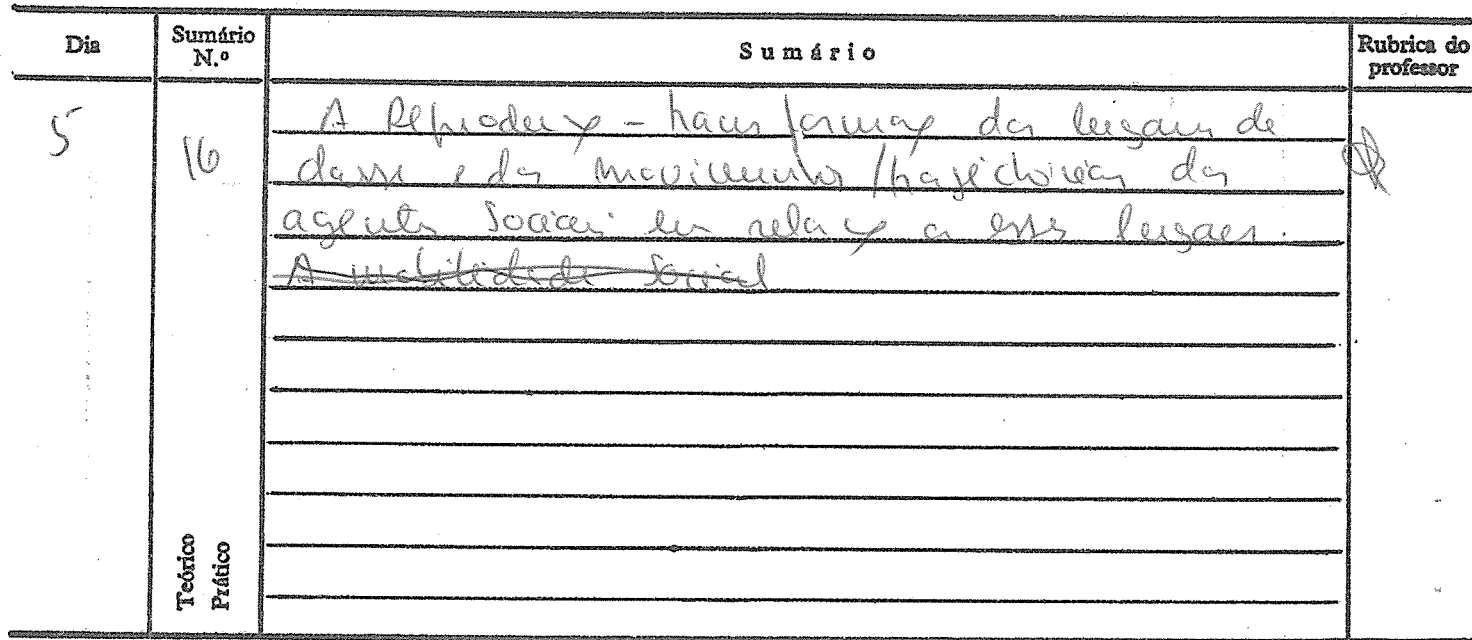 Dia
Sumário N.º
Sumário
Rubrica do professor
5
16
A Reprodução - transformação dos lugares de
classe e dos movimentos / trajectórias dos
agentes sociais em relação a esses lugares.
A mobilidade social
Teórico
Prático